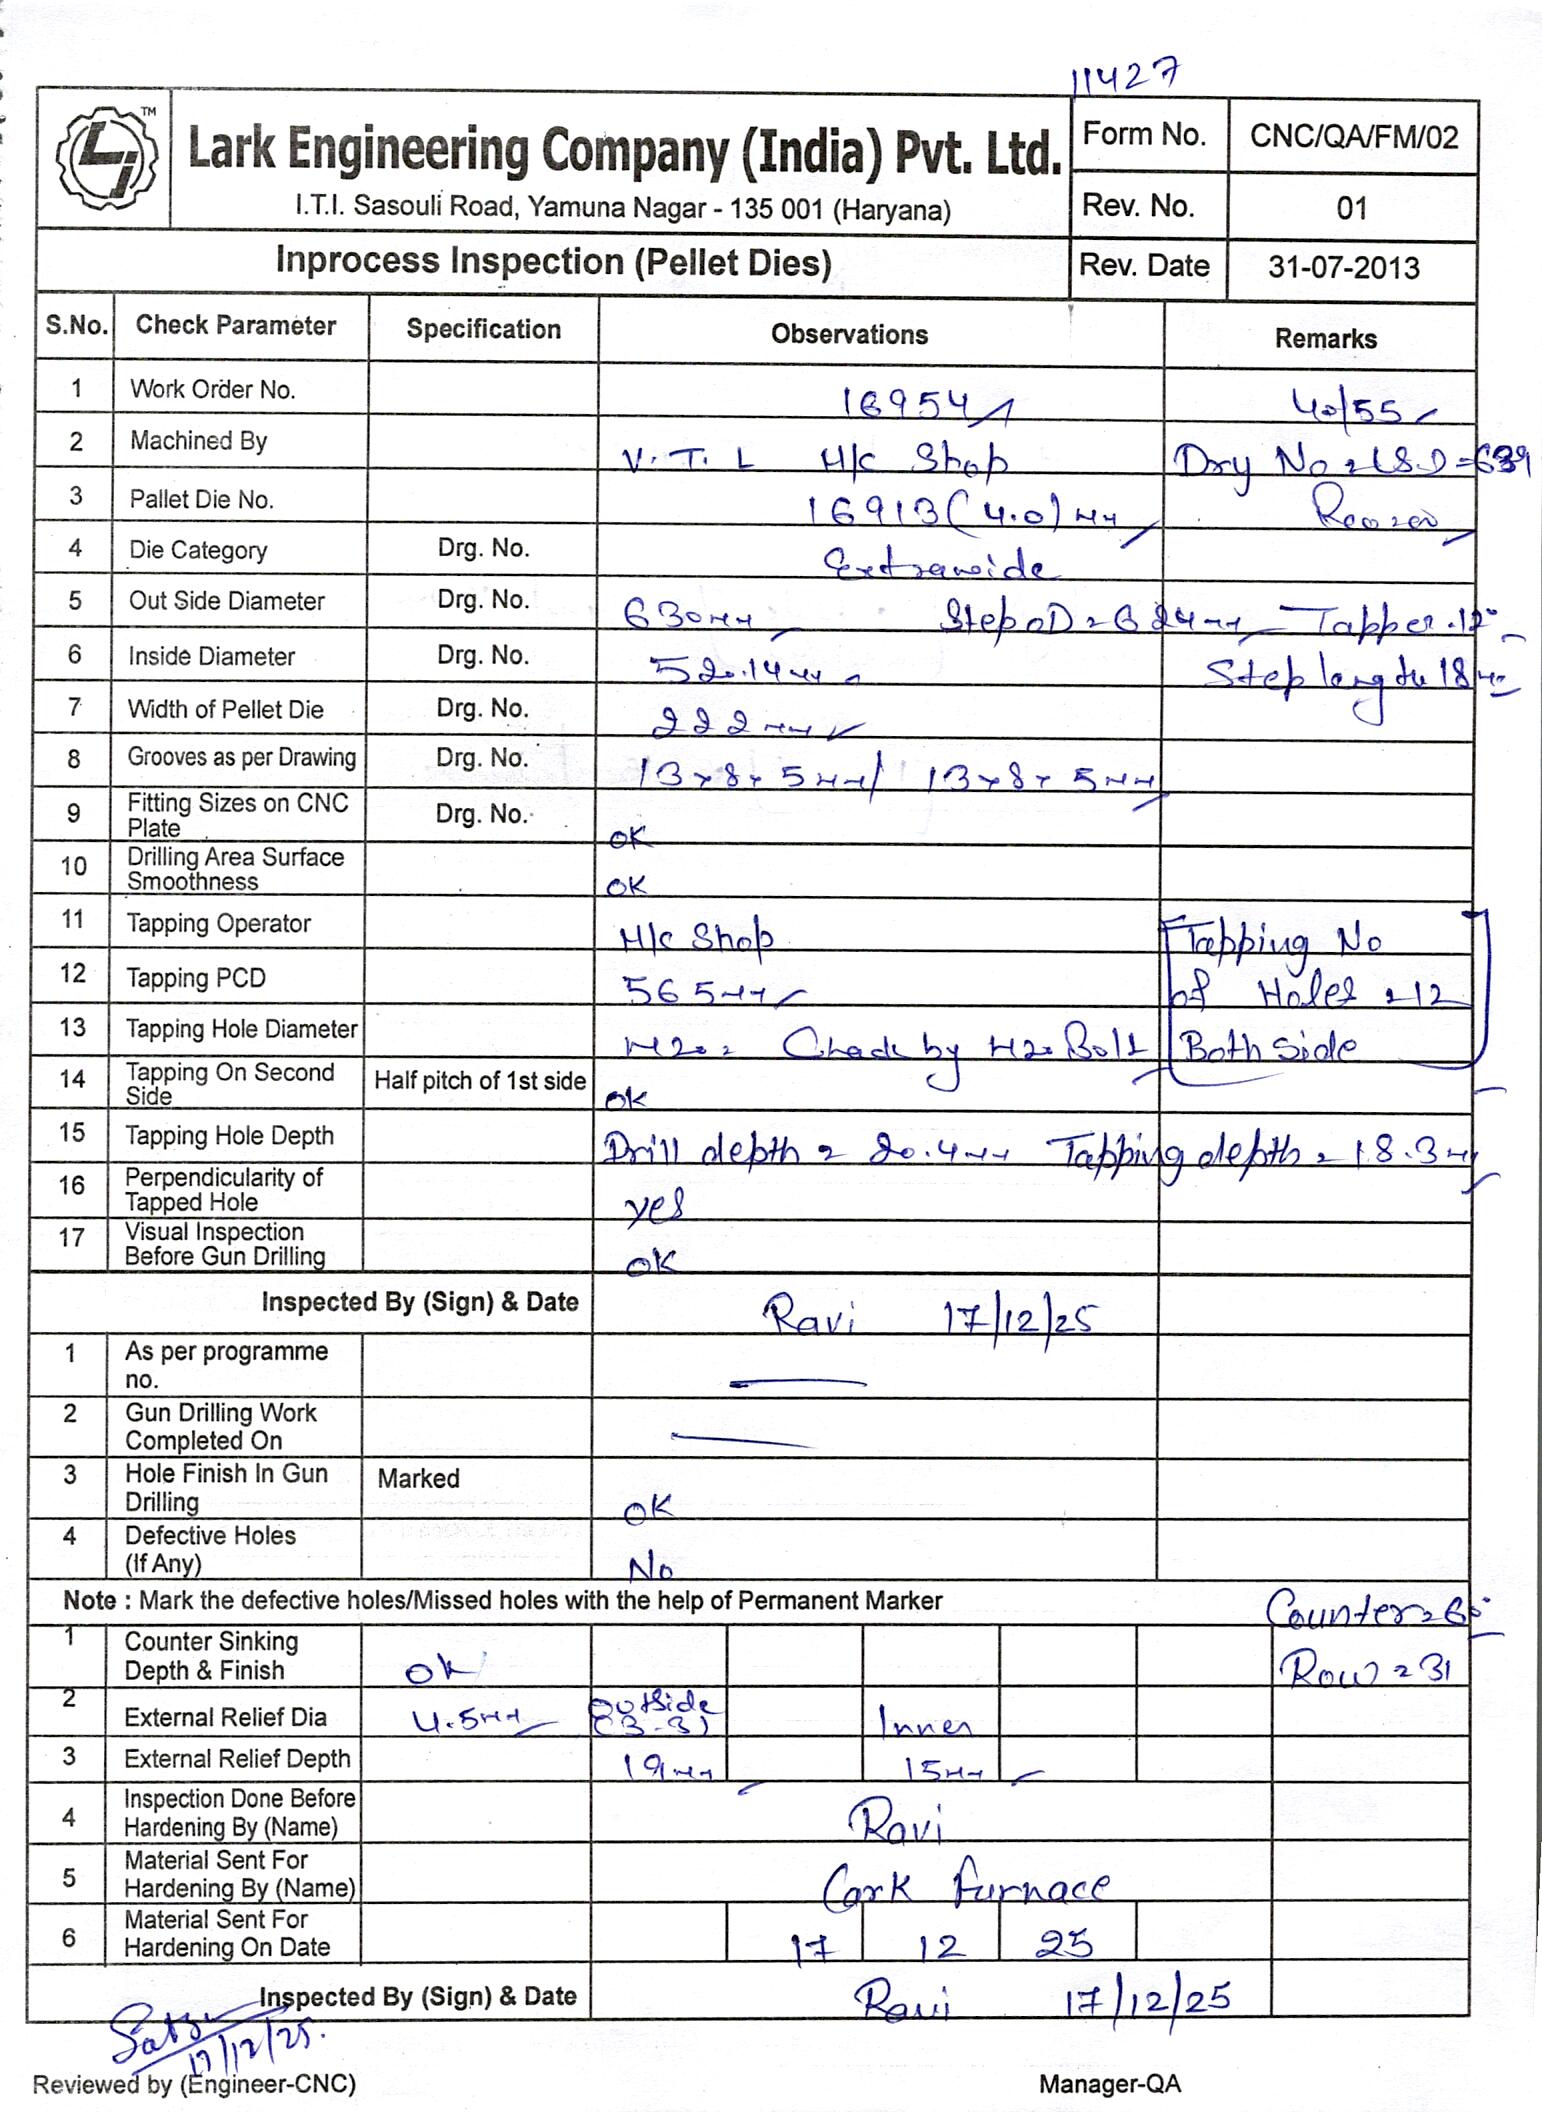 11427
TM
Lark Engineering Company (India) Pvt. Ltd.
I.T.I. Sasouli Road, Yamuna Nagar - 135 001 (Haryana)
Form No. CNC/QA/FM/02
Rev. No. 01
Inprocess Inspection (Pellet Dies) Rev. Date 31-07-2013
S.No. Check Parameter Specification Observations Remarks
1 Work Order No. 16954 40/55
2 Machined By V.T.L M/c Shop Dry No = LSD = 639
3 Pallet Die No. 16913 (4.0) mm
4 Die Category Drg. No. Extrawide
5 Out Side Diameter Drg. No. 630mm Step OD = 624mm Tapper 12°
6 Inside Diameter Drg. No. 520.14mm Step length 18mm
7 Width of Pellet Die Drg. No. 222mm
8 Grooves as per Drawing Drg. No. 13x8x5mm / 13x8x5mm
9 Fitting Sizes on CNC Plate Drg. No. OK
10 Drilling Area Surface Smoothness OK
11 Tapping Operator M/c Shop Tapping No
12 Tapping PCD 565mm of Holes = 12
13 Tapping Hole Diameter M20 = Check by M20 Bolt Both Side
14 Tapping On Second Side Half pitch of 1st side OK
15 Tapping Hole Depth Drill depth = 20.4mm Tapping depth = 18.3mm
16 Perpendicularity of Tapped Hole yes
17 Visual Inspection Before Gun Drilling OK
Inspected By (Sign) & Date Ravi 17/12/25
1 As per programme no.
2 Gun Drilling Work Completed On
3 Hole Finish In Gun Drilling Marked OK
4 Defective Holes (If Any) No
Note : Mark the defective holes/Missed holes with the help of Permanent Marker Counter = 60°
1 Counter Sinking Depth & Finish OK Row = 31
2 External Relief Dia 4.5mm Outside (3-3) Inner
3 External Relief Depth 19mm 15mm
4 Inspection Done Before Hardening By (Name) Ravi
5 Material Sent For Hardening By (Name) Lark Furnace
6 Material Sent For Hardening On Date 17 12 25
Inspected By (Sign) & Date Ravi 17/12/25
17/12/25.
Reviewed by (Engineer-CNC) Manager-QA